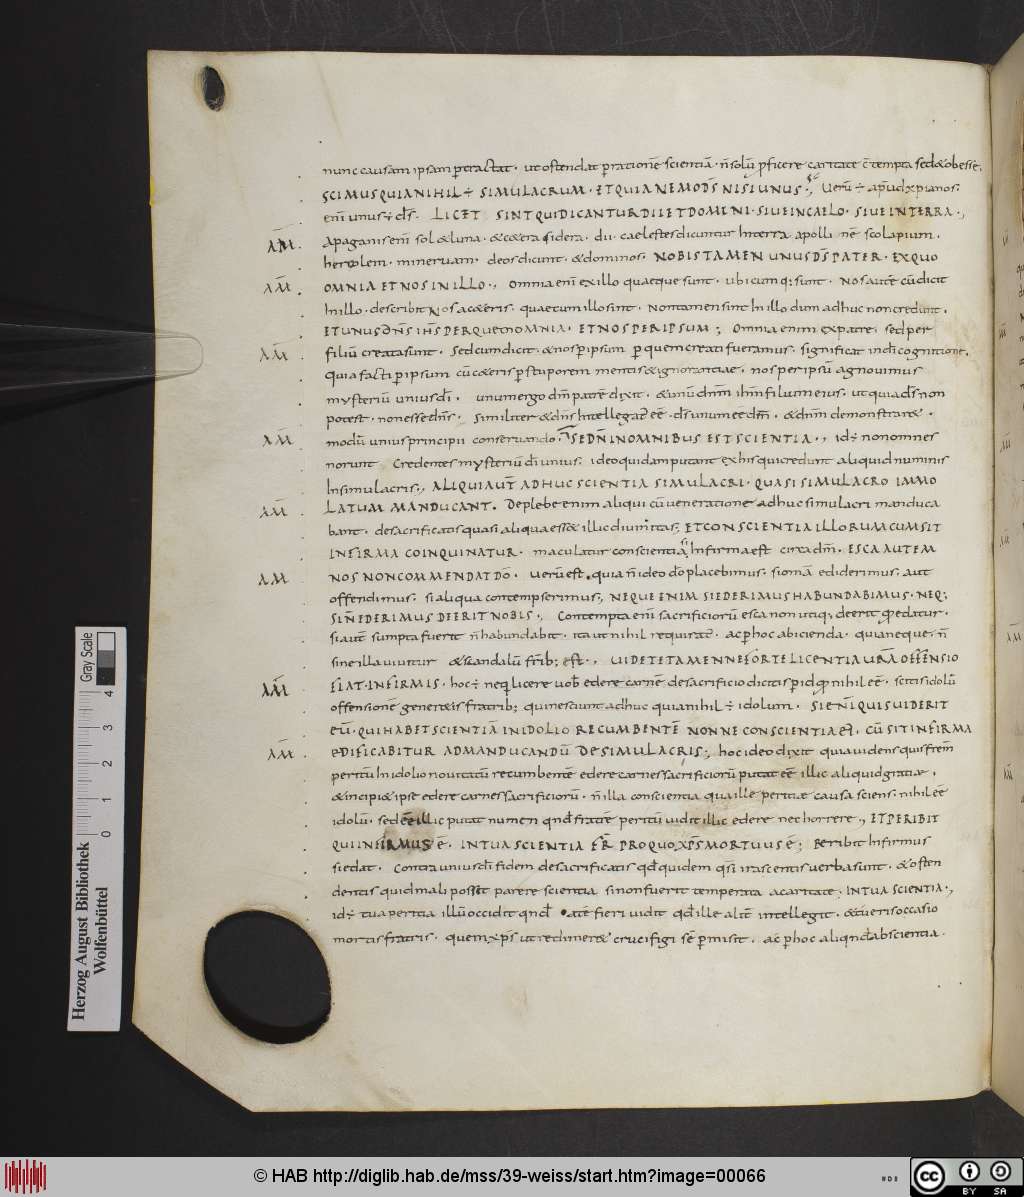 nunc causam ipsam ꝑtractat · ut ostendat ꝑ rationē scientiā · n̄ solū ꝓficere caritate c̄tempta sed & obesse ;
SCIMUS QUIA NIHIL ÷ SIMULACRUM · ET QUIA NEMO DS̄ NISI UNUS ·, Verū ÷ apud xpianos ·
enī unus ÷ ds̄ · LICET SINT QUI DICANTUR DII ET DOMINI · SIUE IN CAELO · SIUE IN TERRA ·,
AM · Apaganis enī sol & luna · & cetera sidera · dii caelestes dicuntur In terra apolli nē scolapium ·
herculem · mineruam · deos dicunt · & dominos · NOBIS TAMEN UNUS DS̄ PATER · EX QUO
AM · OMNIA ET NOS IN ILLO ·, Omnia enī ex illo quaeque sunt · ubicumq; sunt · Nos autē cū dicit
In illo · describit Nos a ceteris · quae cum illo sint · Non tamen sint In illo dum adhuc non credunt ·
ET UNUS DN̄S IHS̄ PER QUEM OMNIA · ET NOS PER IPSUM ; Omnia enim ex patre · sed per
AM · filiū creata sunt · Sed cum dicit · & nos ꝑ ipsum ꝑ quem creati fueramus · significat In di cognitione ·
quia facti ꝑ ipsum cū ceteris ꝑ stuporem mentis & ignorantiae · nos per ipsū agnouimus
mysteriū unius dī · unum ergo dm̄ patrē dixit · & unū dnm̄ ihm̄ filium eius · ut quia ds̄ non
potest · non esse dn̄s · Similiter & dn̄s Intellegat̄ eē · ds̄ unum eē dm̄ · & dnm̄ demonstrar& ·
AM · modū unius principii conseruando · SED N̄ IN OMNIBUS EST SCIENTIA ·, id ÷ non omnes
norunt Credentes mysteriū dī unius · ideo quidam putant ex his qui credunt aliquid numinis
In simulacris ·, ALIQUI AUT̄ ADHUC SCIENTIA SIMULACRI · QUASI SIMULACRO IMMO
AM · LATUM MANDUCANT · De plebe enim aliqui cū ueneratione adhuc simulacri manduca
bant · de sacrificatis quasi aliqua ess& illic diuinitas ; ET CONSCIENTIA ILLORUM CUM SIT
INFIRMA COINQUINATUR · maculatur conscientia si Infirma est circa dm̄ · ESCA AUTEM
AM · NOS NON COMMENDAT DŌ · Uerū est · quia n̄ ideo dō placebimus · si omīa ediderimus · aut
offendimus · si aliqua contempserimus ·, NEQUE ENIM SI EDERIMUS HABUNDABIMUS · NEQ;
SI N̄ EDERIMUS DEERIT NOBIS ·, Contempta enī sacrificiorū esca non utiq; deerit q̄ edatur ·
si autē sumpta fuerit n̄ habundabit · ita ut nihil requirat̄ · ac ꝑ hoc abicienda · quia neque · n̄
sine illa uiuitur & scandalū fr̄ib; est ·, UIDETE TAMEN NE FORTE LICENTIA UR̄A OFFENSIO
AM · FIAT · INFIRMIS · hoc ÷ neq; licere uob edere carnē de sacrificio dicitis ꝑ id q̄ nihil eē · scitis idolū
offensionē generetis fratrib; qui nesciunt adhuc quia nihil ÷ idolum · SI ENĪ QUIS UIDERIT
EŪ · QUI HABET SCIENTIĀ IN IDOLIO RECUMBENTĒ NONNE CONSCIENTIA EI · CŪ SIT INFIRMA
AM · EDIFICABITUR AD MANDUCANDŪ DE SIMULACRIS ;, hoc ideo dixit quia uidens quis frēm
peritū In idolio nouitatū recumbentē edere carnes sacrificiorū putat eē illic aliquid gratiae ·
& incipi& ipse edere carnes sacrificiorū · n̄ illa conscientia qua ille peritiae causa sciens · nihil eē
idolū · sed eē illic putat numen qnd fratrē peritū uidit illic edere nec horrere ·, ET PERIBIT
QUI INFIRMUS Ē · IN TUA SCIENTIA FR̄ PRO QUO XP̄S MORTUUS Ē ; Peribit Infirmus
si edat · Contra unius dī fidem de sacrificatis qd quidem qsi irascentis uerba sunt · & often
dentis quid mali possit parere scientia si non fuerit temperata a caritate · IN TUA SCIENTIA ·,
id ÷ tua peritia illū occidit qnd · atē fieri uidit qd ille alit̄ intellegit · & tu eris occasio
mortis fratris · quem xp̄s ut redimer& crucifigi sē ꝑmisit · ac ꝑ hoc aliqnd ab scientia ·
Herzog August Bibliothek
Wolfenbüttel
Gray Scale
0 1 2 3 4
© HAB http://diglib.hab.de/mss/39-weiss/start.htm?image=00066
cc BY SA